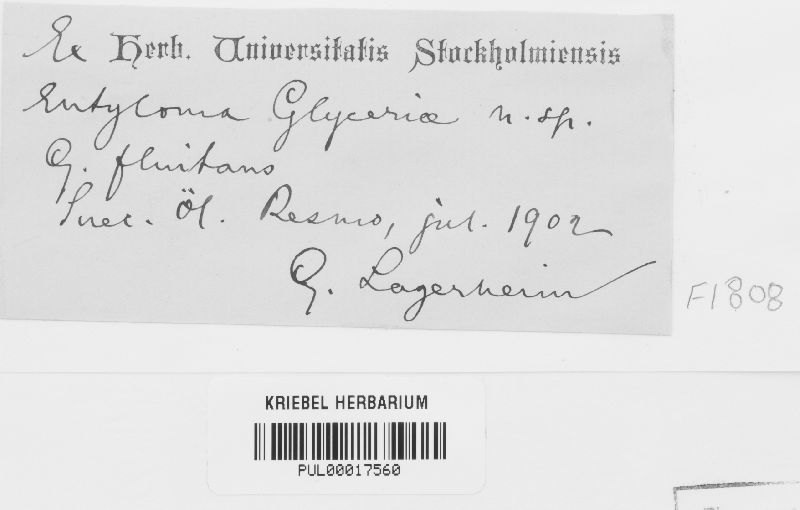 Ex Herb. Universitatis Stockholmiensis
Entyloma Glyceriæ n. sp.
G. fluitans
Suec. Öl. Resmo, jul. 1902
G. Lagerheim
F1808
KRIEBEL HERBARIUM
PUL00017560